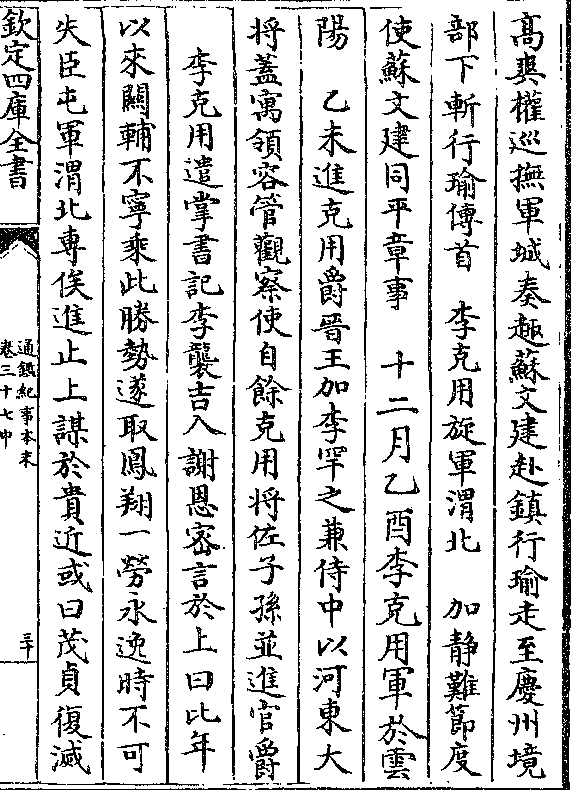 高爽權巡撫軍城奏趣蘇文建赴鎮行瑜走至慶州境
部下斬行瑜傳首　李克用旋軍渭北　加静難節度
使蘇文建同平章事　十二月乙酉李克用軍於雲
陽　乙未進克用爵晉王加李罕之兼侍中以河東大
将蓋寓領容管觀察使自餘克用将佐子孫並進官爵
李克用遣掌書記李襲吉入謝恩宻言於上曰比年
以來關輔不寧乘此勝勢遂取鳳翔一勞永逸時不可
失臣屯軍渭北専俟進止上謀於貴近或曰茂貞復滅
欽定四庫全書
通鑑紀事本末
卷三十七中
三十